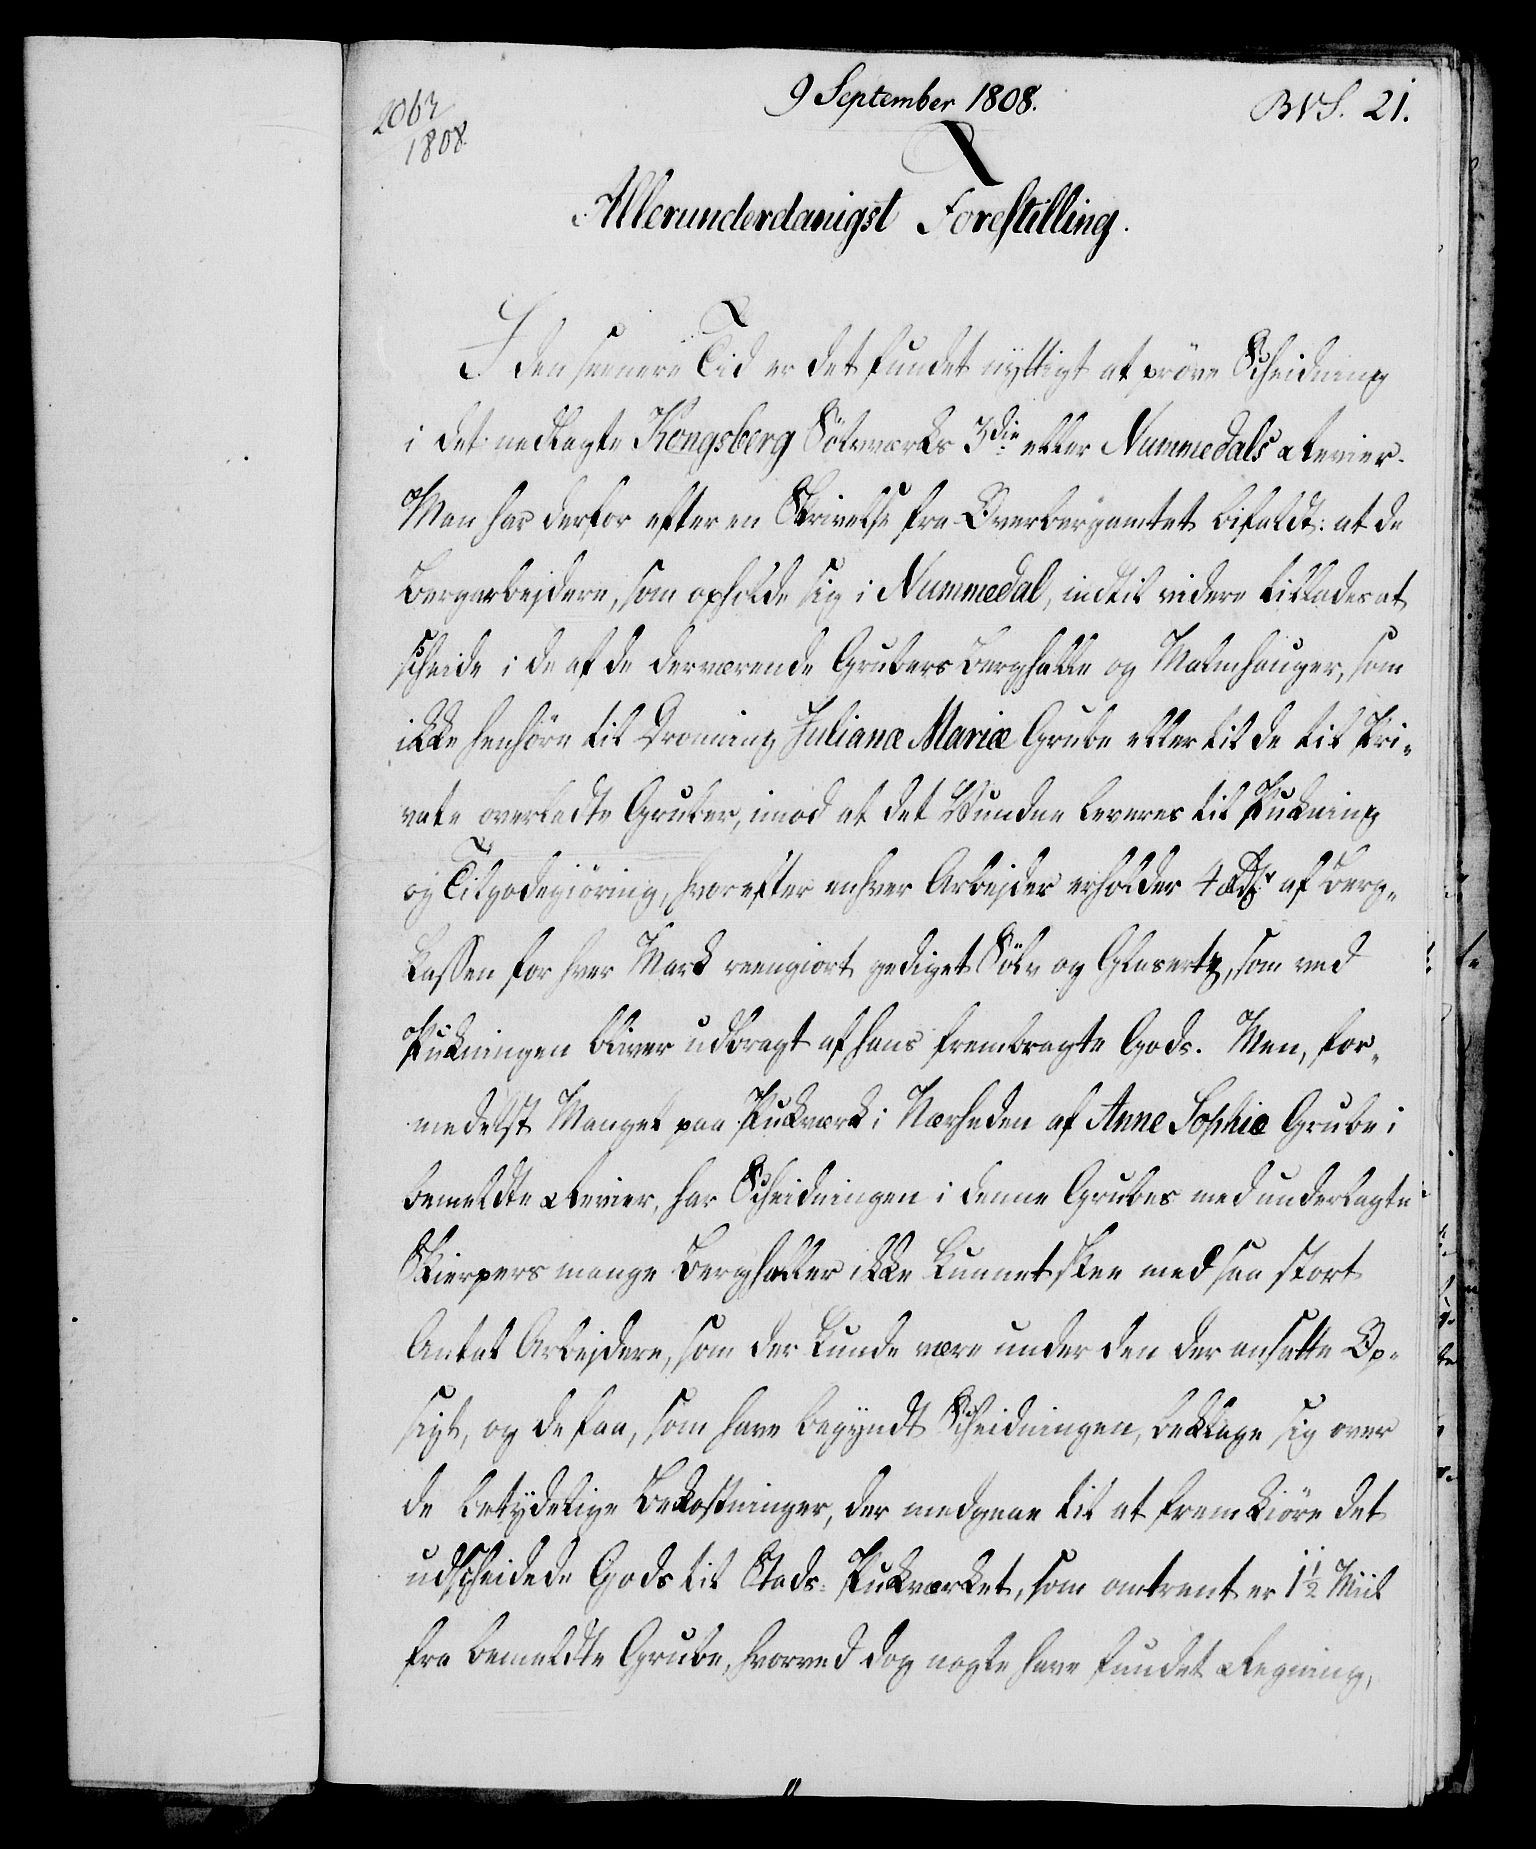 9 September 1808.
BVS. 21.
2063
1808.
Allerunderdanigst Forestilling.
I den seenere Tid er det fundet nyttigt at pröve Scheidning
i det nedlagte Kongsberg Sölvværks 3die eller Nummedals Revier.
Man har derfor efter en Skrivelse fra Overbergamtet bifaldt: at de
Bergarbejdere, som opholde sig i Nummedal, indtil videre tillades at
scheide i de af de derværende Grubers Berghalle og Malmhauger, som
ikke henhöre til Dronning Julianæ Mariæ Grube eller til de til Pri„
vate overladte Gruber, imod at det Vundne leveres til Pukning
og Tilgodegiöring, hvorefter enhver Arbejder erholder 4 Rdr af Berg„
Kassen for hver Mark reengiort gediget Sölv og Glasertz, som ved
Pukningen bliver udbragt af hans frembragte Gods. Men, for„
medelst Mangel paa Pukværk i Nærheden af Anne Sophiæ Grube i
bemeldte Revier, har Scheidningen i denne Grubes med underlagte
Skierpers mange Berghalle ikke kunnet skee med saa stort
Antal Arbejdere, som der kunde være under den der ansatte Op„
sigt, og de faa, som have begyndt Scheidningen, beklage sig over
de betydelige Bekostninger, der medgaae til at fremkiöre det
udscheidede Gods til Stads-Pukværket, som omtrent er 1½ Miil
fra bemeldte Grube, hvorved dog nogle have fundet Regning,